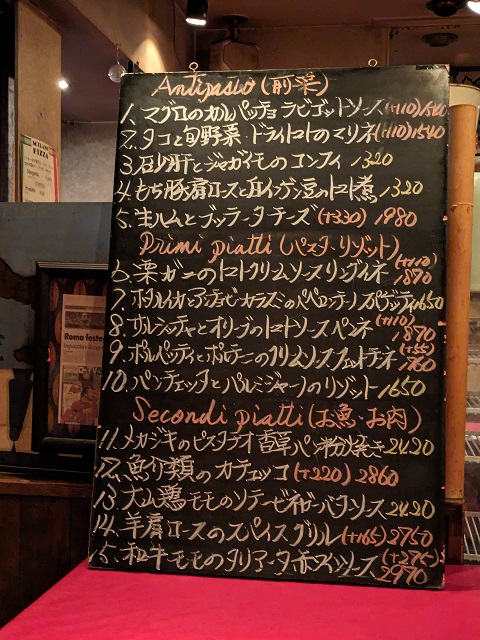 Antipasto (前菜)
1. マグロのカルパッチョ ラビゴットソース (+110) 1540
2. タコと旬野菜・ドライトマトのマリネ (+110) 1540
3. 砂肝とジャガイモのコンフィ 1320
4. もち豚肩ロースと白インゲン豆のトマト煮 1320
5. 生ハムとブッラータチーズ (+330) 1980
Primi piatti (パスタ・リゾット)
6. 栗ガニのトマトクリームソース リングイネ (+110) 1870
7. ホタルイカ・アンチョビ・カラスミのペペロンチーノ スパゲッティ 1650
8. サルシッチャとオリーブのトマトソース ペンネ (+110) 1870
9. ポルペッティとポルチーニのクリームソース フェットチーネ (+55) 1760
10. パンチェッタとパルミジャーノのリゾット 1650
Secondi piatti (お魚・お肉)
11. メカジキのピスタチオ香草パン粉焼き 2420
12. 魚介類のカチュッコ (+220) 2860
13. 大山鶏モモのソテー ビネガーバターソース 2420
14. 羊肩ロースのスパイスグリル (+165) 2750
15. 和牛モモのタリアータ 赤ワインソース (+275) 2970
PIZZA
Roma feste